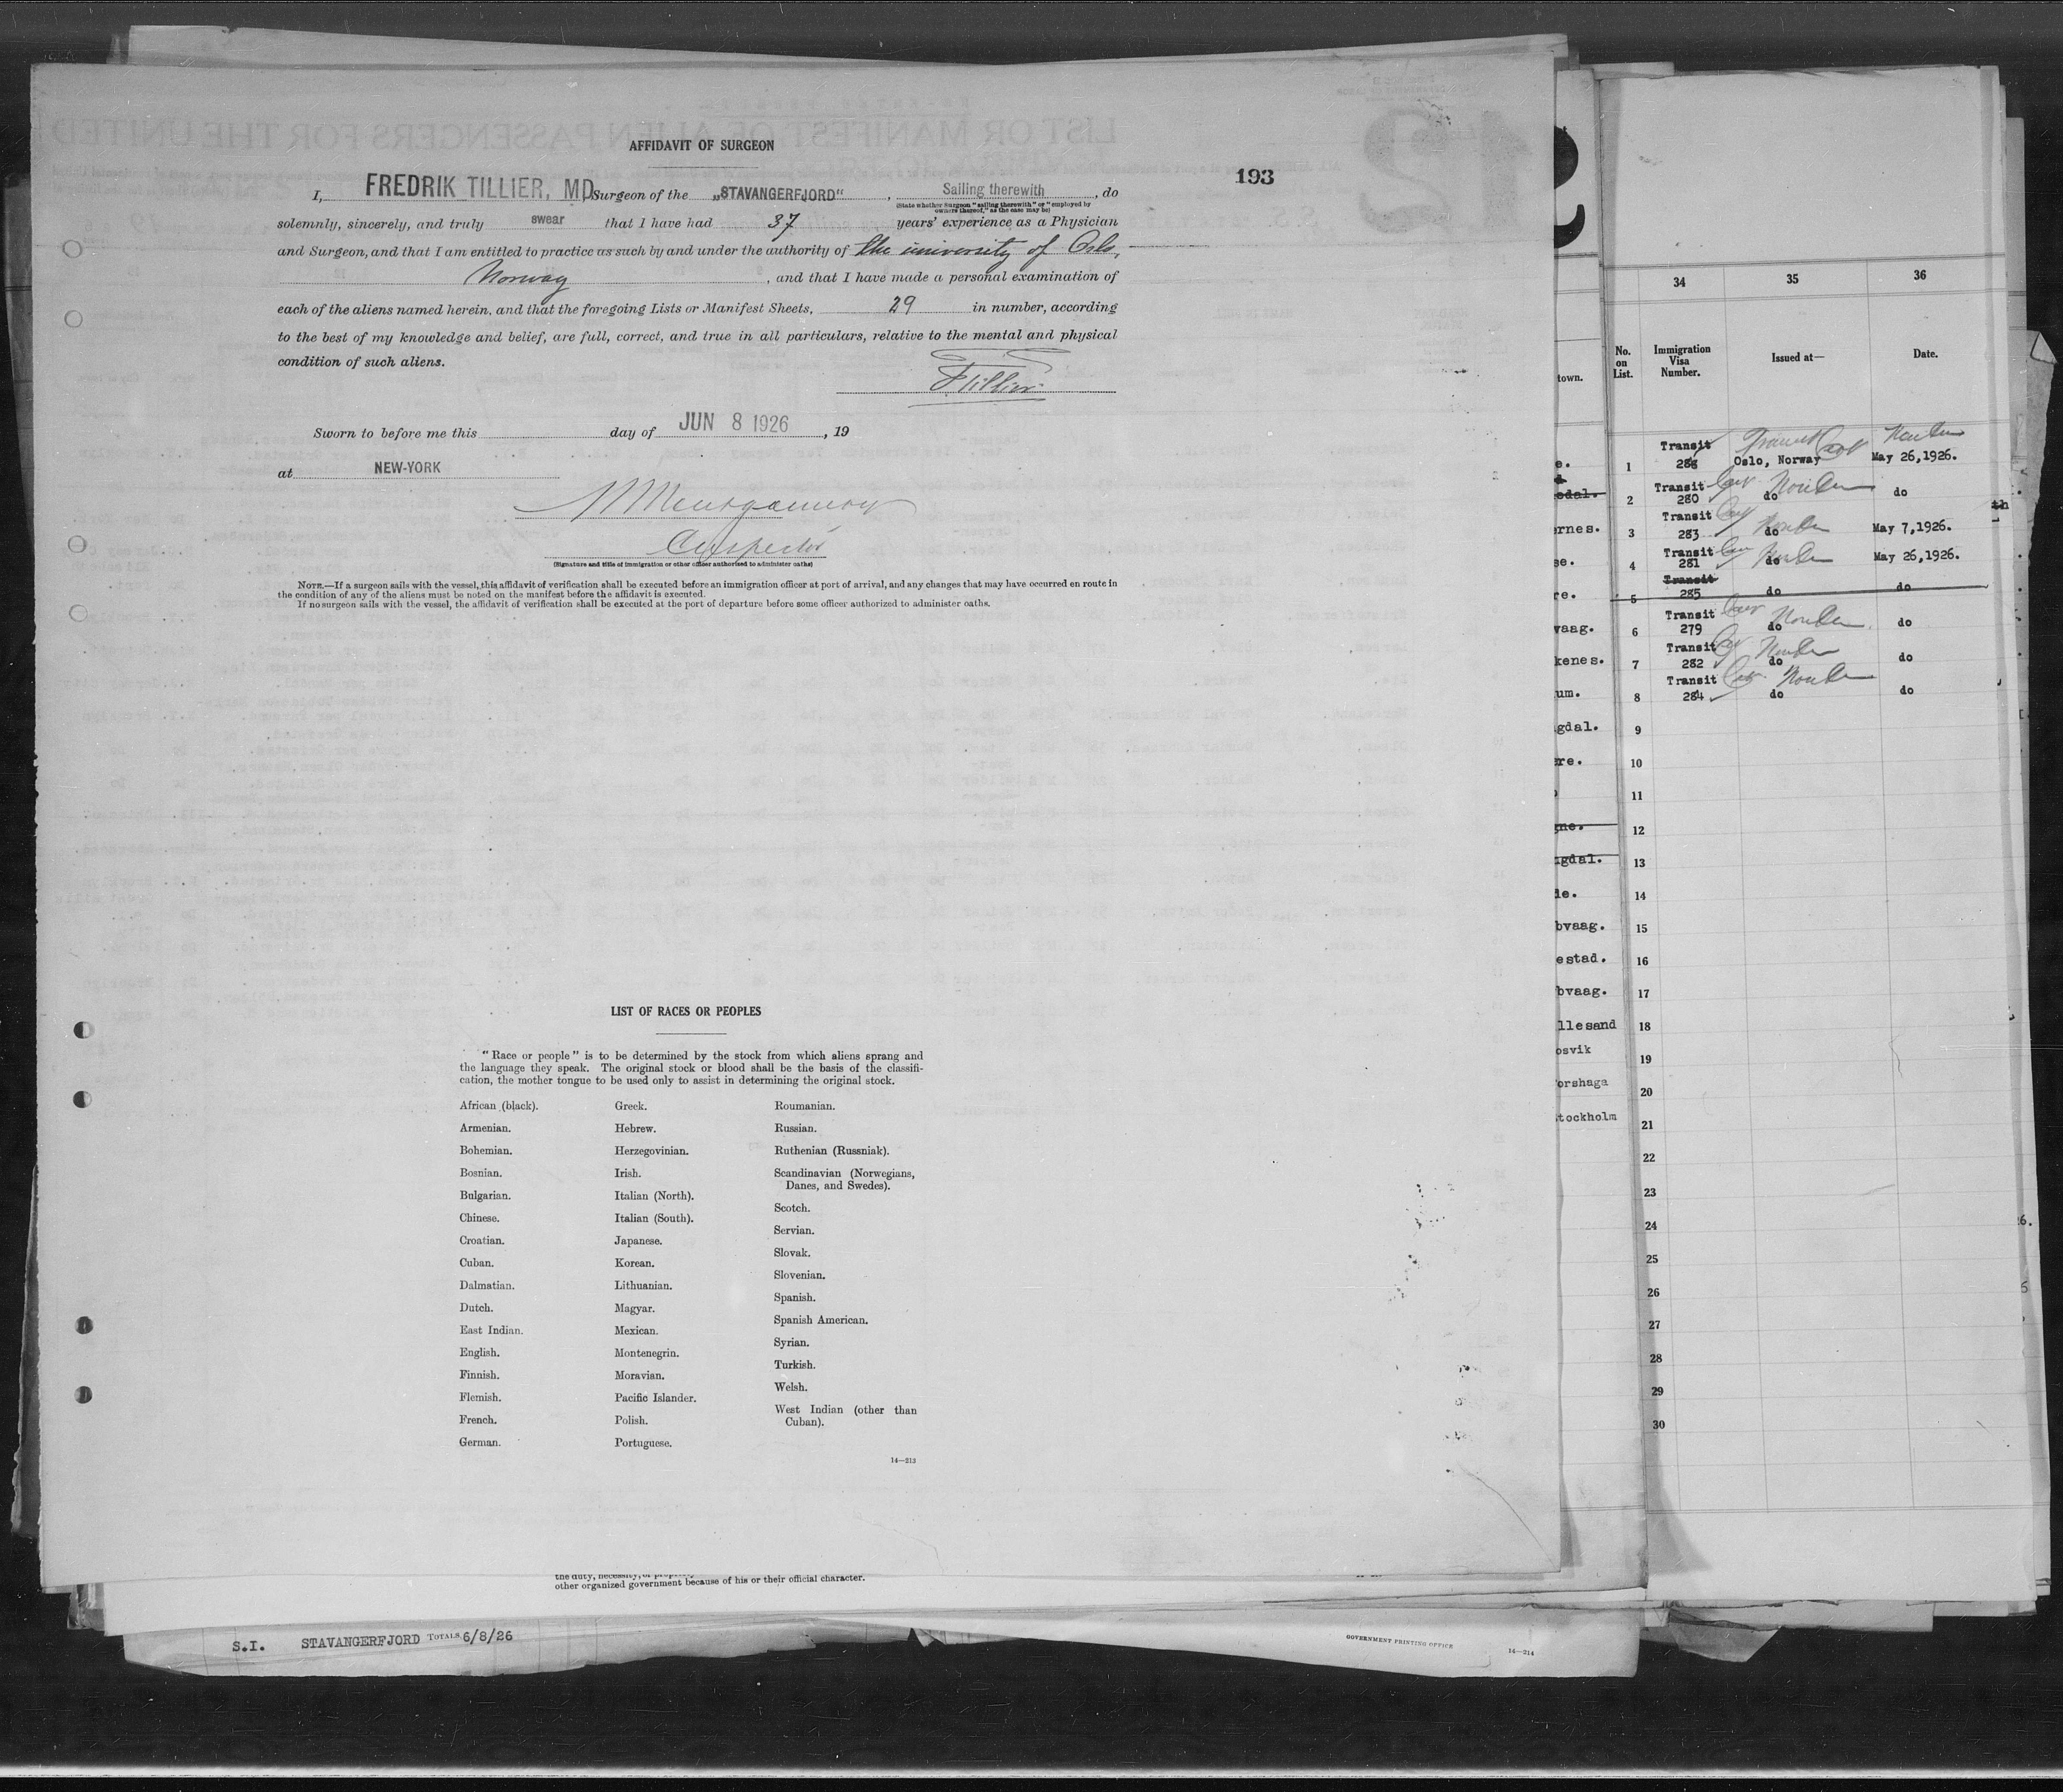 AFFIDAVIT OF SURGEON
193
I, FREDRIK TILLIER, MD Surgeon of the „STAVANGERFJORD“, Sailing therewith, do
(State whether Surgeon "sailing therewith" or "employed by
owners thereof," as the case may be)
solemnly, sincerely, and truly swear that I have had 37 years' experience as a Physician
and Surgeon, and that I am entitled to practice as such by and under the authority of the university of Oslo,
Norway, and that I have made a personal examination of
each of the aliens named herein, and that the foregoing Lists or Manifest Sheets, 29 in number, according
to the best of my knowledge and belief, are full, correct, and true in all particulars, relative to the mental and physical
condition of such aliens.
F. Tillier
Sworn to before me this day of JUN 8 1926, 19
at NEW-YORK
Montgomery
Inspector
(Signature and title of immigration or other officer authorized to administer oaths)
NOTE.—If a surgeon sails with the vessel, this affidavit of verification shall be executed before an immigration officer at port of arrival, and any changes that may have occurred en route in
the condition of any of the aliens must be noted on the manifest before the affidavit is executed.
If no surgeon sails with the vessel, the affidavit of verification shall be executed at the port of departure before some officer authorized to administer oaths.
LIST OF RACES OR PEOPLES
"Race or people" is to be determined by the stock from which aliens sprang and
the language they speak. The original stock or blood shall be the basis of the classifi-
cation, the mother tongue to be used only to assist in determining the original stock.
African (black).
Armenian.
Bohemian.
Bosnian.
Bulgarian.
Chinese.
Croatian.
Cuban.
Dalmatian.
Dutch.
East Indian.
English.
Finnish.
Flemish.
French.
German.
Greek.
Hebrew.
Herzegovinian.
Irish.
Italian (North).
Italian (South).
Japanese.
Korean.
Lithuanian.
Magyar.
Mexican.
Montenegrin.
Moravian.
Pacific Islander.
Polish.
Portuguese.
Roumanian.
Russian.
Ruthenian (Russniak).
Scandinavian (Norwegians,
Danes, and Swedes).
Scotch.
Servian.
Slovak.
Slovenian.
Spanish.
Spanish American.
Syrian.
Turkish.
Welsh.
West Indian (other than
Cuban).
14—213
other organized government because of his or their official character.
S.I. STAVANGERFJORD TOTALS 6/8/26
GOVERNMENT PRINTING OFFICE
14—214
34 35 36
No. on List. Immigration Visa Number. Issued at— Date.
town.
1 Transit Oslo, Norway May 26,1926.
2 Transit 280 do do
ernes. 3 Transit 283 do May 7,1926.
se. 4 Transit 281 do May 26,1926.
re. 5 Transit 285 do do
vaag. 6 Transit 279 do do
kenes. 7 Transit 282 do do
um. 8 Transit 284 do do
gdal. 9
ere. 10
11
gne. 12
gdal. 13
de. 14
bvaag. 15
estad. 16
bvaag. 17
llesand 18
osvik 19
orshaga 20
tockholm 21
22
23
24
25
26
27
28
29
30